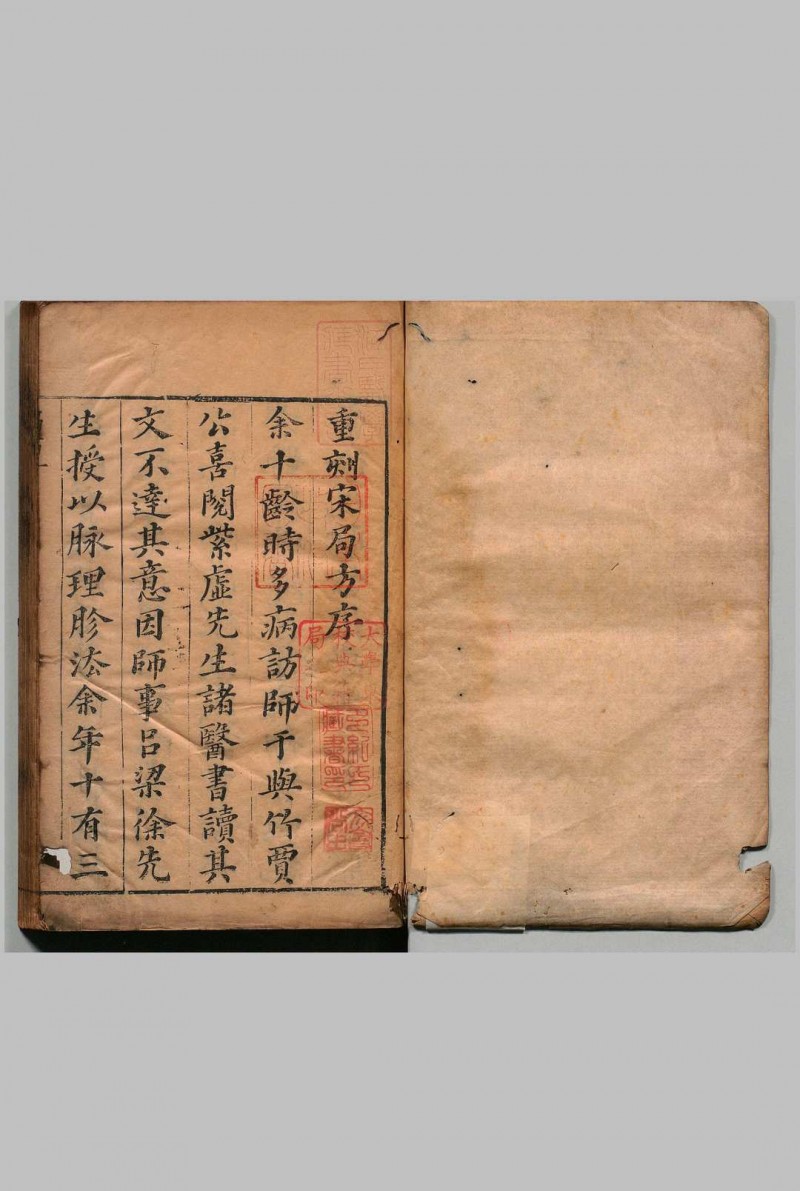 重刻宋局方序
余十齡時多病訪師于與竹賈
公喜閱紫虛先生諸醫書讀其
文不達其意因師事吕梁徐先
生授以脉理胗法余年十有三